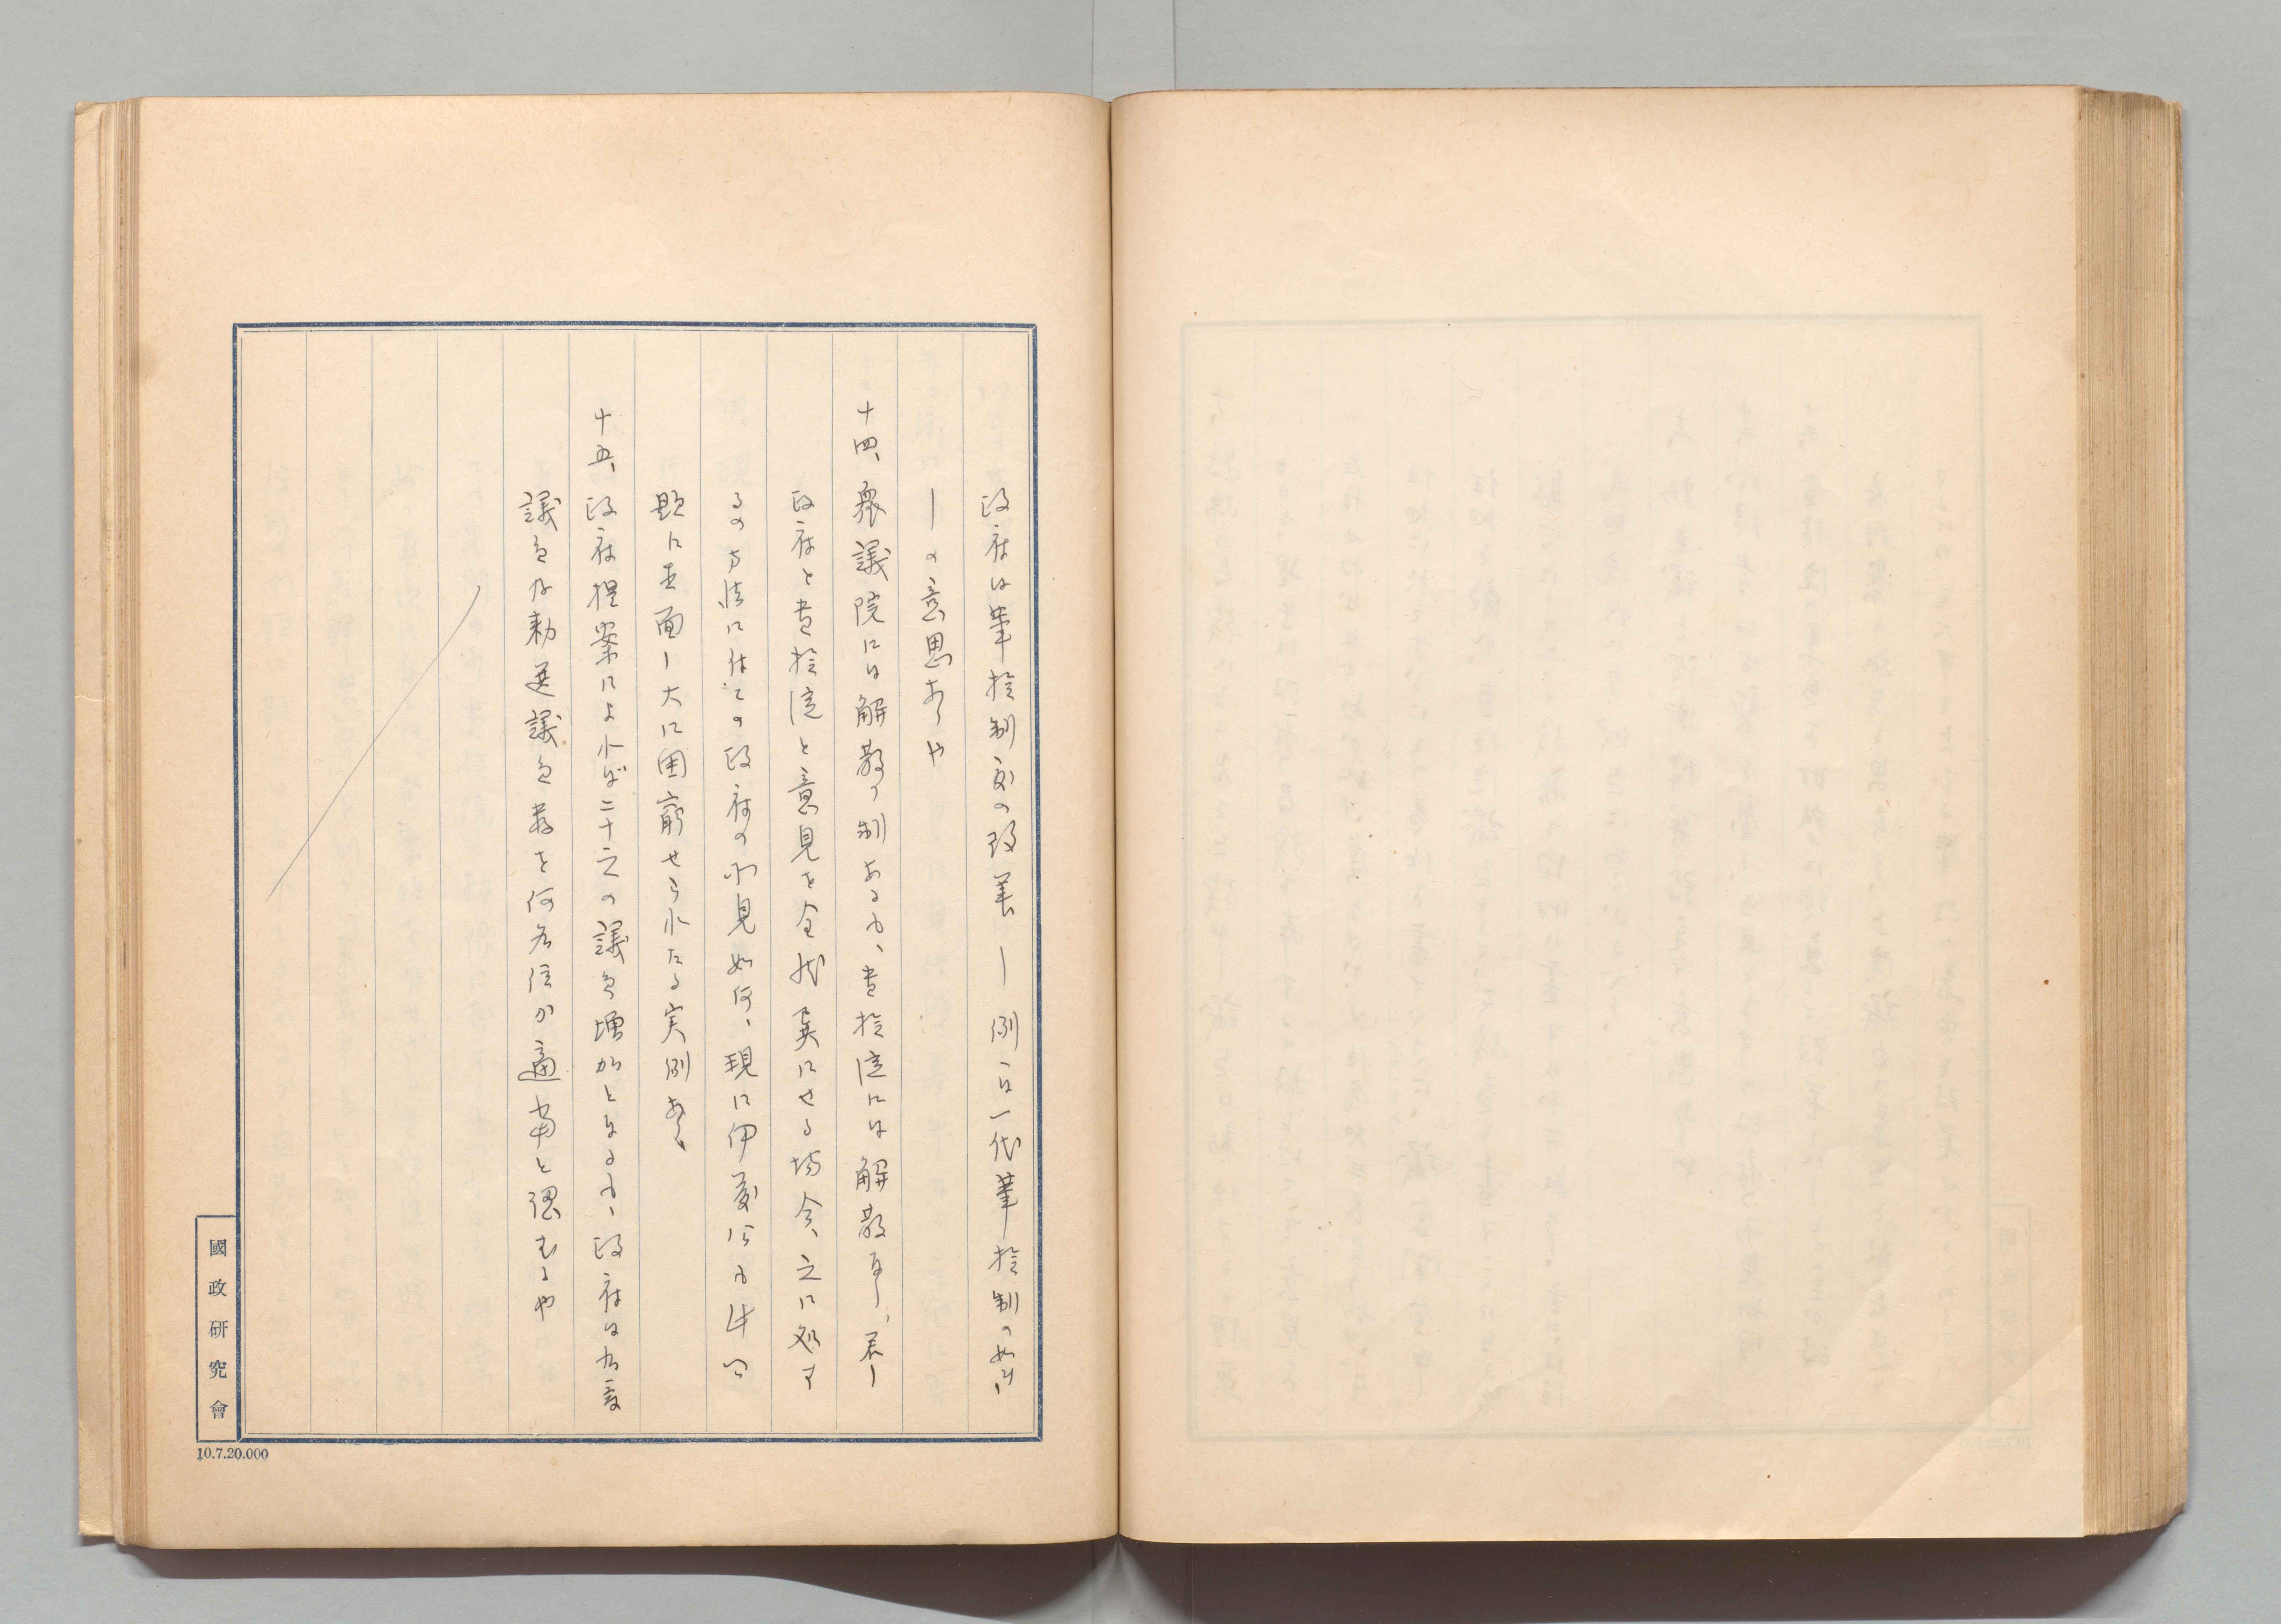 政府は華族制度の改善―例へは一代華族制の如き
―の意思ありや
十四、衆議院には解散の制あるも、貴族院には解散なし、若し
政府と貴族院と意見を全然異にせる場合、之に処す
るの方法に付ての政府の所見如何、現に伊藤公も此問
題に直面し大に困窮せられたる実例あり、
十五、政府提案によれば二十六の議員増加となるも、政府は有爵
議員及勅選議員数を何名位が適当と認むるや
國政研究會
10.7.20.000